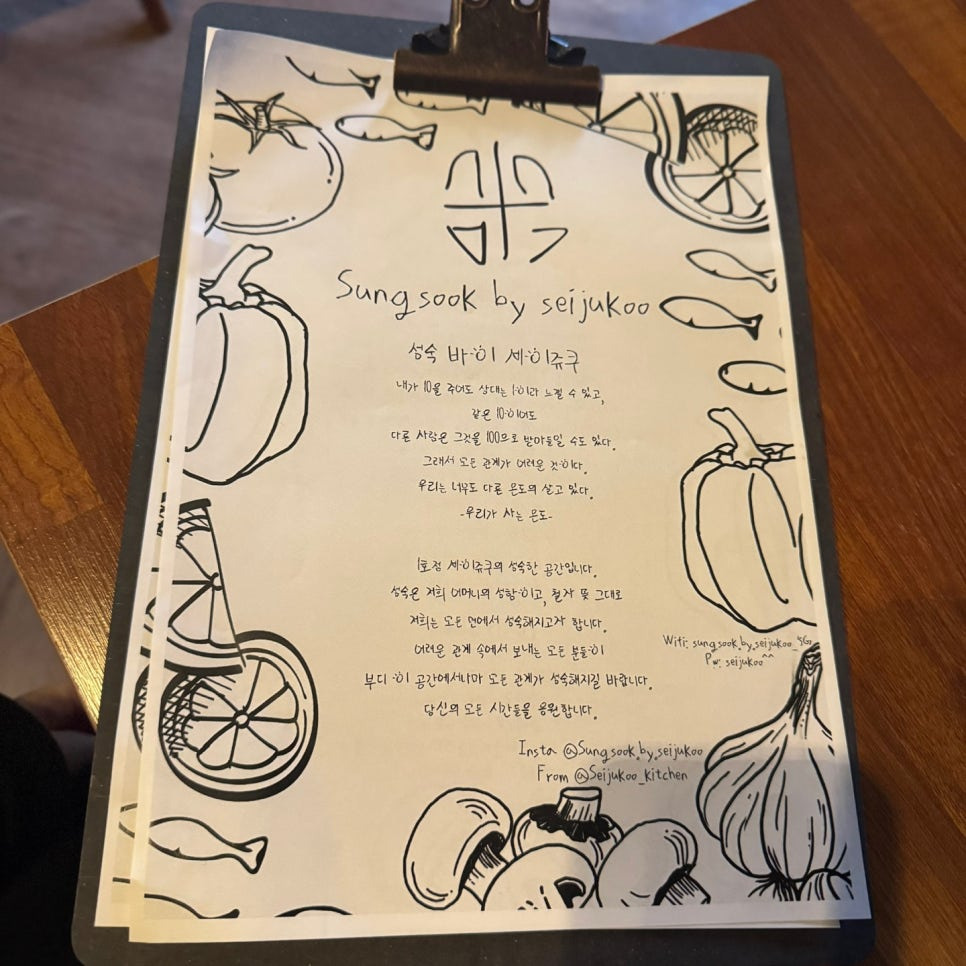 Sungsook by seijukoo
성숙 바이 세이쥬쿠
내가 10을 주어도 상대는 1이라 느낄 수 있고,
같은 10이어도
다른 사람은 그것을 100으로 받아들일 수도 있다.
그래서 모든 관계가 어려운 것이다.
우리는 너무도 다른 온도의 살고 있다.
-우리가 사는 온도-
1호점 세이쥬쿠의 성숙한 공간입니다.
성숙은 저희 어머니의 성함이고, 철자 뜻 그대로
저희는 모든 면에서 성숙해지고자 합니다.
어려운 관계 속에서 보내는 모든 분들이
부디 이 공간에서나마 모든 관계가 성숙해지길 바랍니다.
당신의 모든 시간들을 응원합니다.
Wifi: sungsook.by.seijukoo_5G
Pw: seijukoo^^
Insta @Sungsook.by.seijukoo
From @Seijukoo_kitchen